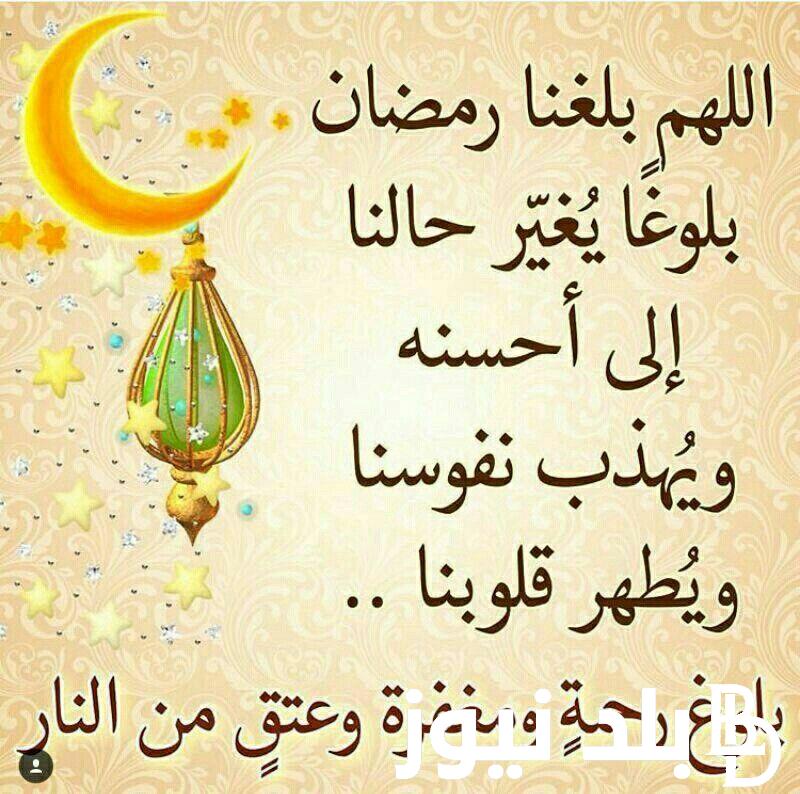 اللهم بلغنا رمضان
بلوغًا يُغيّر حالنا
إلى أحسنه
ويُهذب نفوسنا
ويُطهر قلوبنا ..
بلوغ رحمةٍ ومغفرة وعتقٍ من النار
بلد نيوز
B